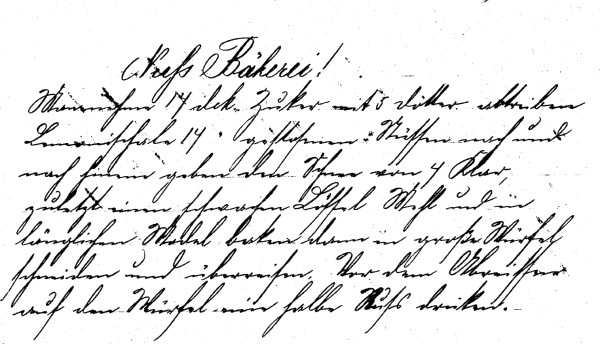 Nuss Bäkerei!
Man nehme 14 dck. Zuker mit 5 Dötter abtreiben
Lemonischale 14 " gestossenen Nüssen nach und
nach hinein geben den Schnee von 4 Klar,
zuletzt einen schwachen Löffel Mehl und in
länglichen Model baken dann in große Würfel
schneiden und übereisen. Vor dem
auf den Würfel eine halbe Nuss drüken.